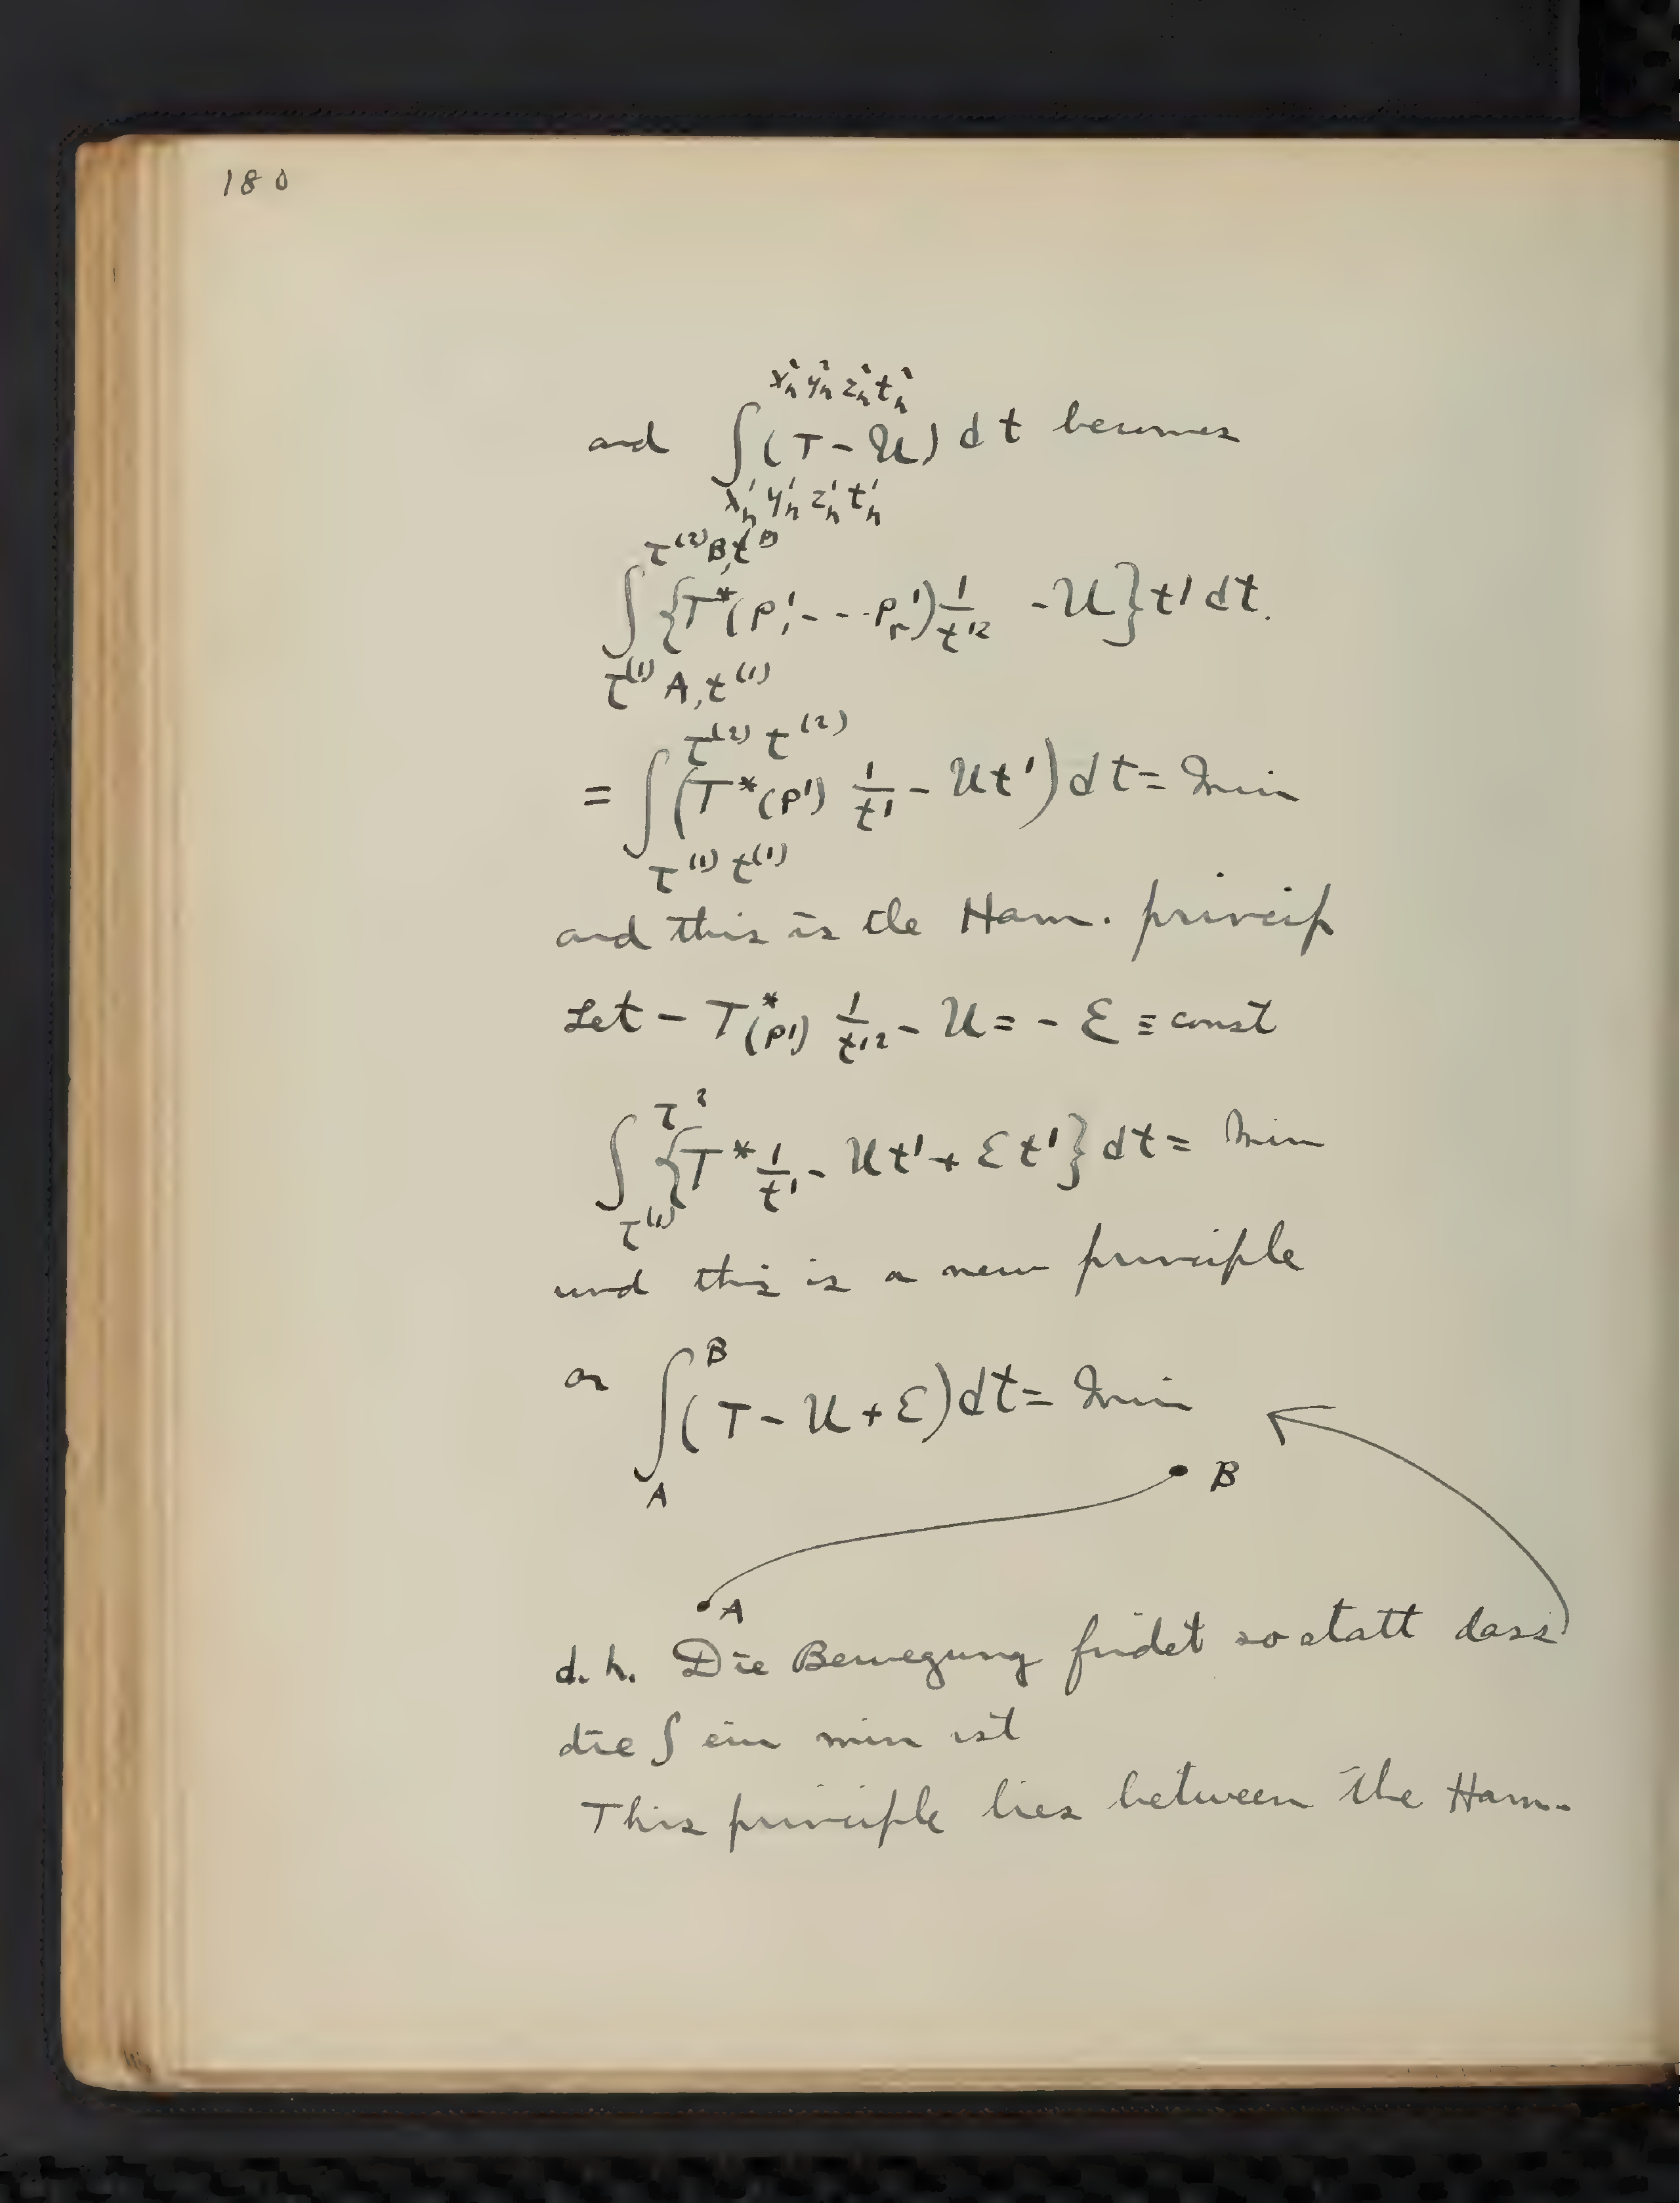 180
x²ₙ y²ₙ z²ₙ t²ₙ
and ∫(T - U) dt becomes
x'ₙ y'ₙ z'ₙ t'ₙ
τ⁽²⁾ B, t⁽²⁾
∫ {T*(p'₁ - - - p'ᵣ) 1/t'² - U} t' dt.
τ⁽¹⁾ A, t⁽¹⁾
τ⁽²⁾ t⁽²⁾
= ∫ (T*(p') 1/t' - Ut') dt = Min
τ⁽¹⁾ t⁽¹⁾
and this is the Ham. princip
Let - T*(p') 1/t'² - U = - ℰ ≡ const
τ²
∫ {T* 1/t' - Ut' + ℰt'} dt = Min
τ⁽¹⁾
und this is a new principle
B
or ∫ (T - U + ℰ) dt = Min
A
B
A
d. h. Die Bewegung findet so statt dass
die ∫ ein min ist
This principle lies between the Ham-